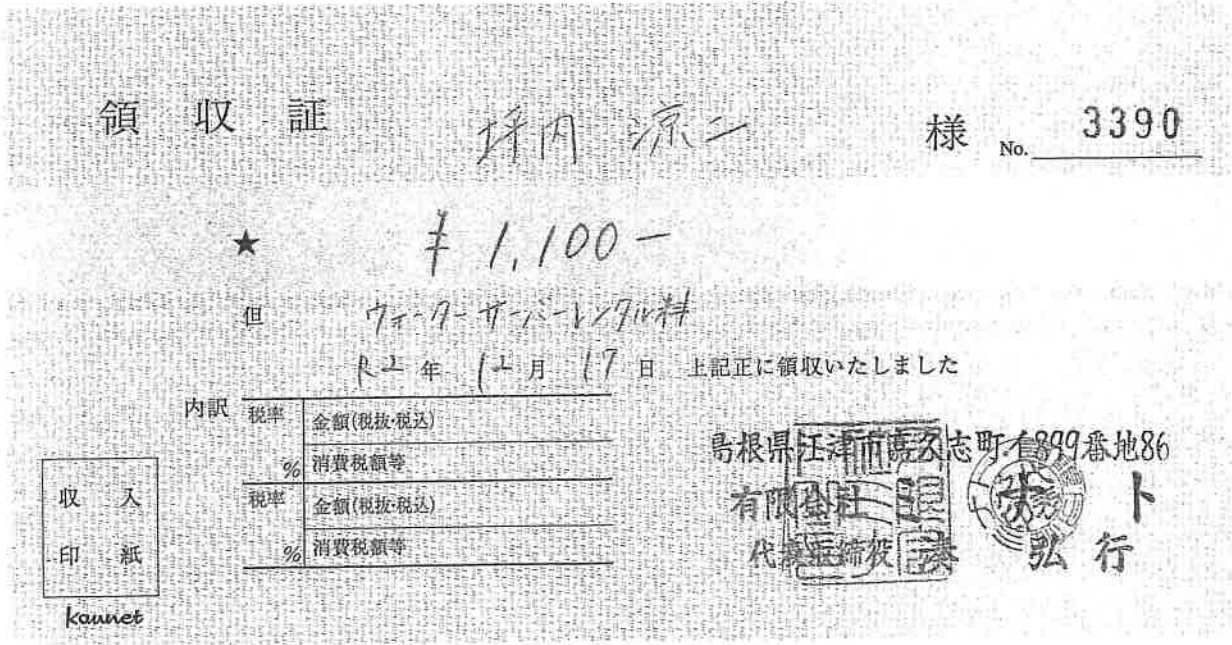 領収証 坪内 涼二 様 No. 3390
★ ¥1,100-
但 ウォーターサーバーレンタル料
R2年 12月 17日 上記正に領収いたしました
内訳 税率 金額(税抜・税込)
% 消費税額等
税率 金額(税抜・税込)
% 消費税額等
収入
印紙
kaunet
島根県江津市嘉久志町イ899番地86
有限会社
代表取締役 湊 弘行